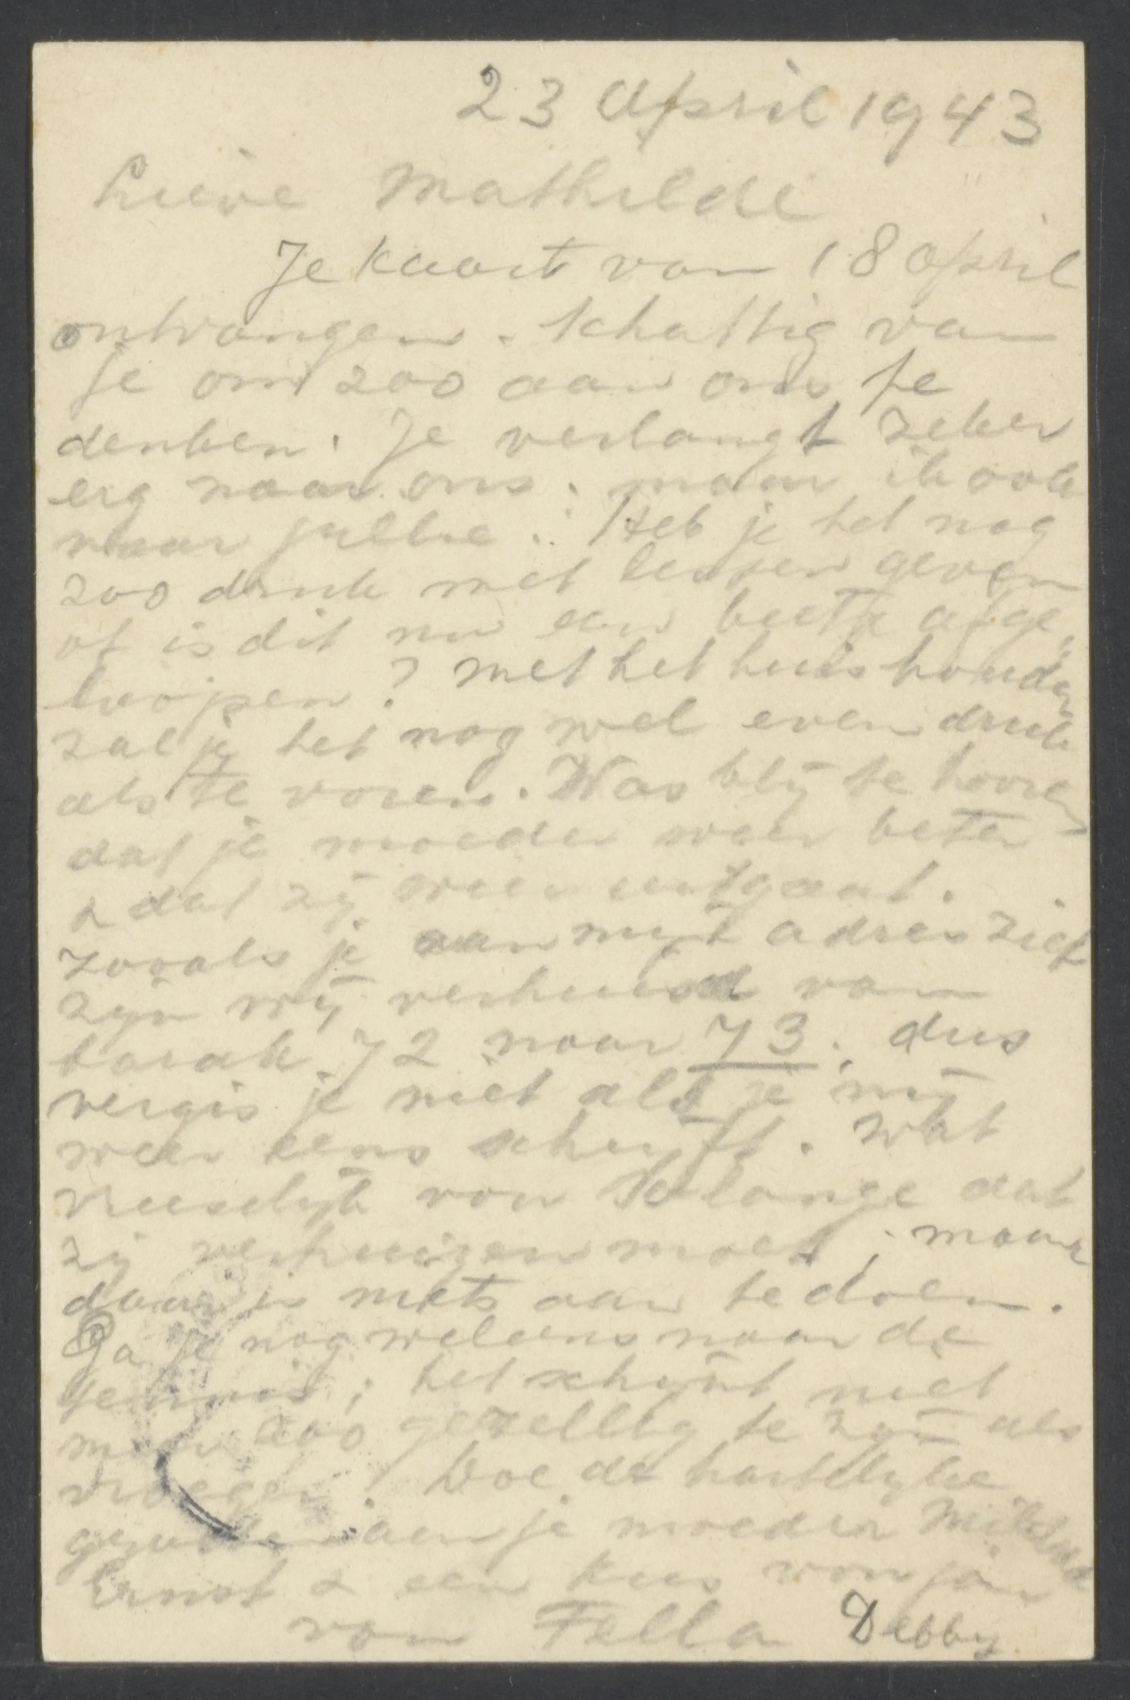 23 April 1943
Lieve Mathilde
Je kaart van 18 april
ontvangen. Schattig van
je om zoo aan ons te
denken. Je verlangt zeker
erg naar ons. maar ik ook
naar jullie. Heb je het nog
zoo druk met lessen geven
of is dit nu een beetje afge-
loopen? Met het huishouden
zal je het nog wel even druk
als te voren. Was blij te hooren
dat je moeder weer beter
& dat zij weer uitgaat.
Zooals je aan mijn adres ziet
zijn wij verhuisd van
barak 72 naar 73. dus
vergis je niet als je mij
weer eens schrijft. Wat
vreeselijk van Solange dat
zij verhuizen moet; maar
daar is niets aan te doen.
Ga je nog weleens naar de
tennis; het schijnt niet
meer zoo gezellig te zijn als
vroeger! Doe de hartelijke
groeten aan je moeder
Ernst & een kus voor jou
van Fella Debby